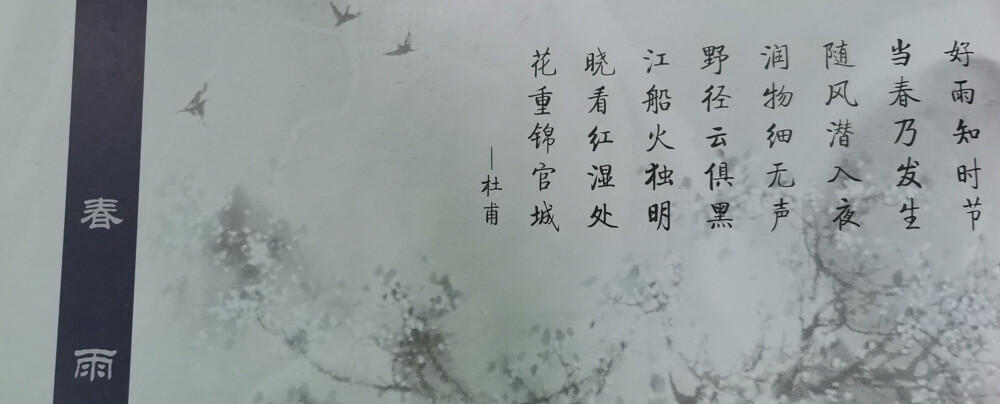 好雨知时节
当春乃发生
随风潜入夜
润物细无声
野径云俱黑
江船火独明
晓看红湿处
花重锦官城
—杜甫
春雨